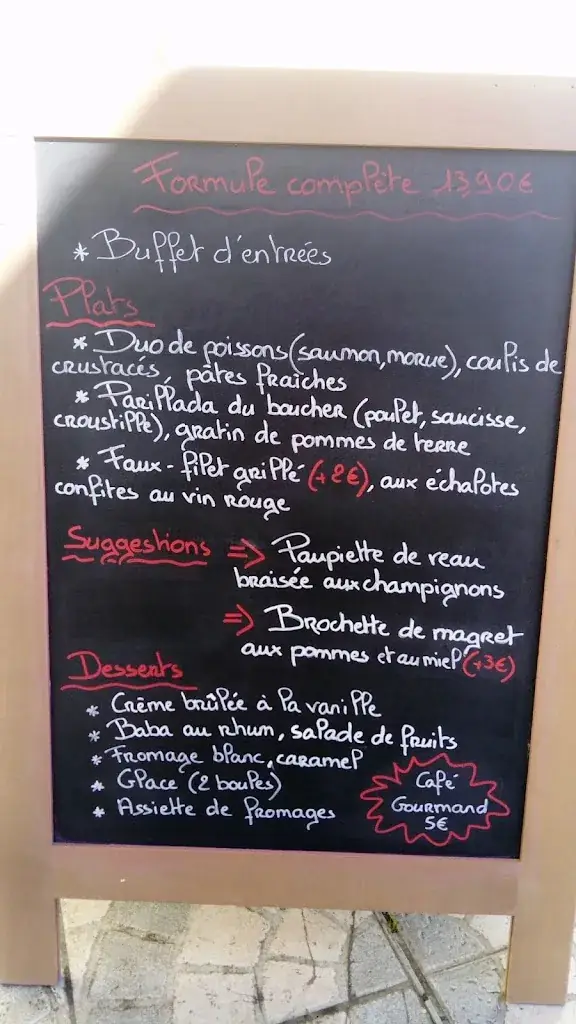 Formule complète 13,90€
* Buffet d'entrées
Plats
* Duo de poissons (saumon, morue), coulis de
crustacés, pâtes fraîches
* Parillada du boucher (poulet, saucisse,
croustille), gratin de pommes de terre
* Faux-filet grillé (+2€), aux échalotes
confites au vin rouge
Suggestions => Paupiette de veau
braisée aux champignons
=> Brochette de magret
aux pommes et au miel (+3€)
Desserts
* Crème brûlée à la vanille
* Baba au rhum, salade de fruits
* Fromage blanc, caramel
* Glace (2 boules)
* Assiette de fromages
Café
Gourmand
5€